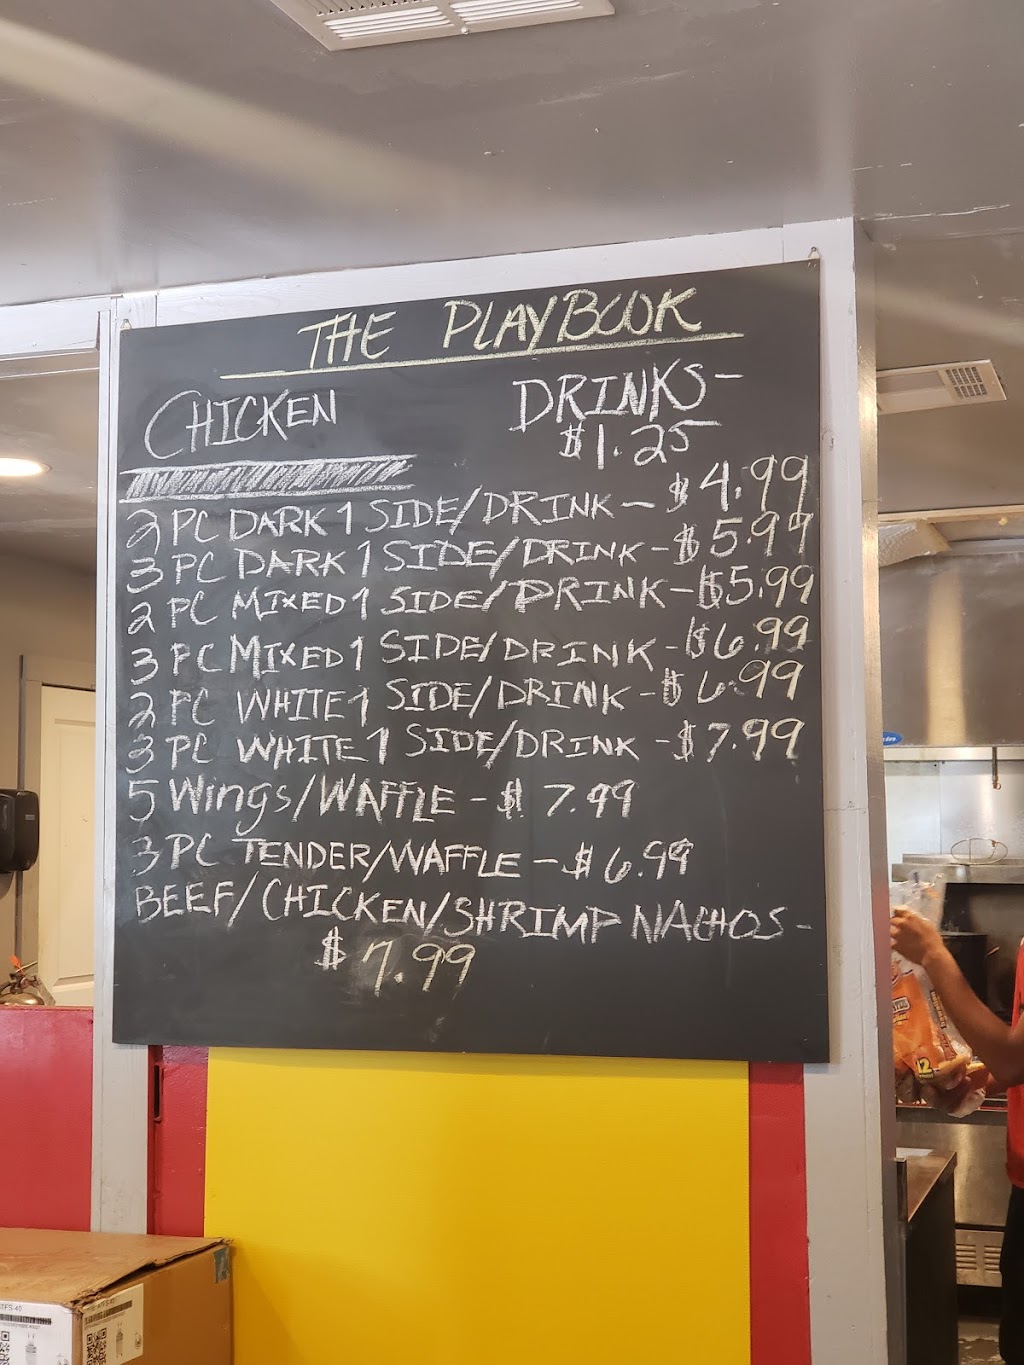 THE PLAYBOOK
CHICKEN
DRINKS-
$1.25
2 PC DARK 1 SIDE/DRINK - $4.99
3 PC DARK 1 SIDE/DRINK - $5.99
2 PC MIXED 1 SIDE/DRINK - $5.99
3 PC MIXED 1 SIDE/DRINK - $6.99
2 PC WHITE 1 SIDE/DRINK - $6.99
3 PC WHITE 1 SIDE/DRINK - $7.99
5 Wings/WAFFLE - $7.99
3 PC TENDER/WAFFLE - $6.99
BEEF/CHICKEN/SHRIMP NACHOS -
$7.99
12